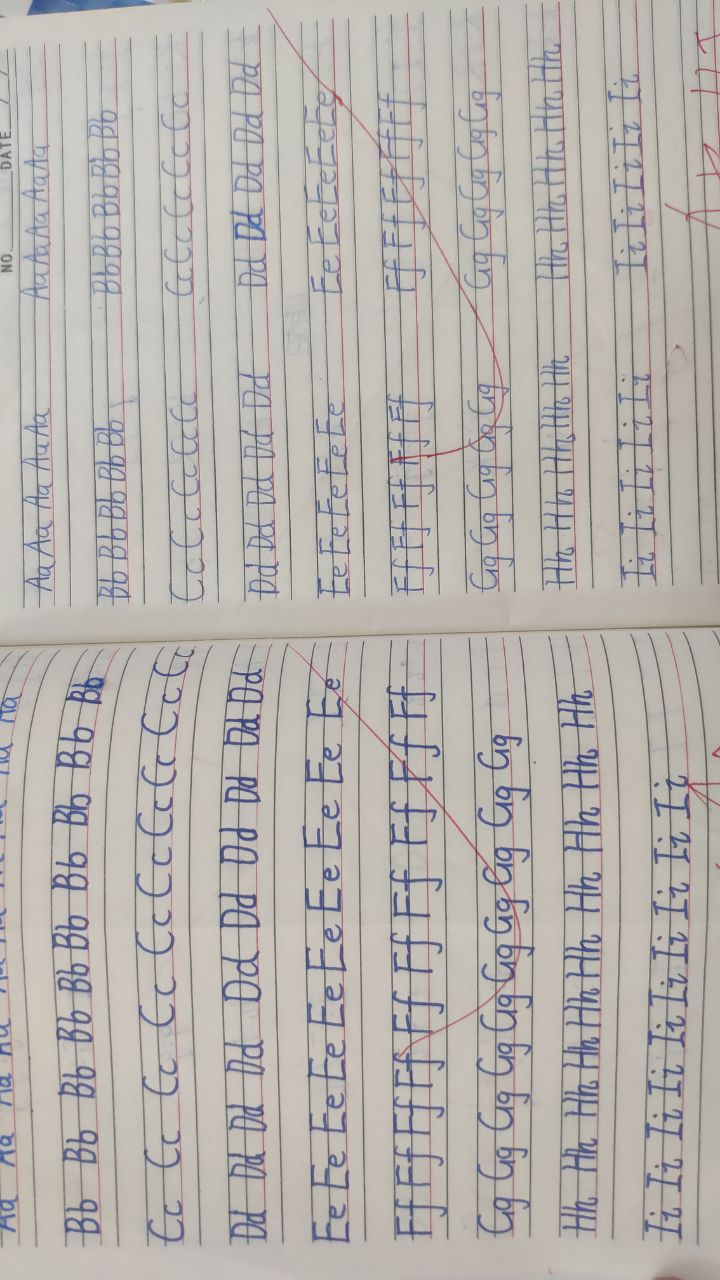 Aa Aa Aa Aa Aa Aa Aa Aa
Bb Bb Bb Bb Bb Bb Bb Bb Bb
Cc Cc Cc Cc Cc Cc Cc Cc Cc Cc
Dd Dd Dd Dd Dd Dd Dd Dd Dd Dd
Ee Ee Ee Ee Ee Ee Ee Ee Ee
Ff Ff Ff Ff Ff Ff Ff Ff Ff
Gg Gg Gg Gg Gg Gg Gg Gg Gg
Hh Hh Hh Hh Hh Hh Hh Hh Hh Hh
Ii Ii Ii Ii Ii Ii Ii Ii Ii
NO. DATE / /
Aa Aa Aa Aa Aa Aa Aa Aa Aa Aa
Bb Bb Bb Bb Bb Bb Bb Bb Bb Bb
Cc Cc Cc Cc Cc Cc Cc Cc Cc Cc Cc
Dd Dd Dd Dd Dd Dd Dd Dd Dd Dd
Ee Ee Ee Ee Ee Ee Ee Ee Ee Ee
Ff Ff Ff Ff Ff Ff Ff Ff Ff Ff
Gg Gg Gg Gg Gg Gg Gg Gg Gg Gg
Hh Hh Hh Hh Hh Hh Hh Hh Hh Hh
Ii Ii Ii Ii Ii Ii Ii Ii Ii Ii